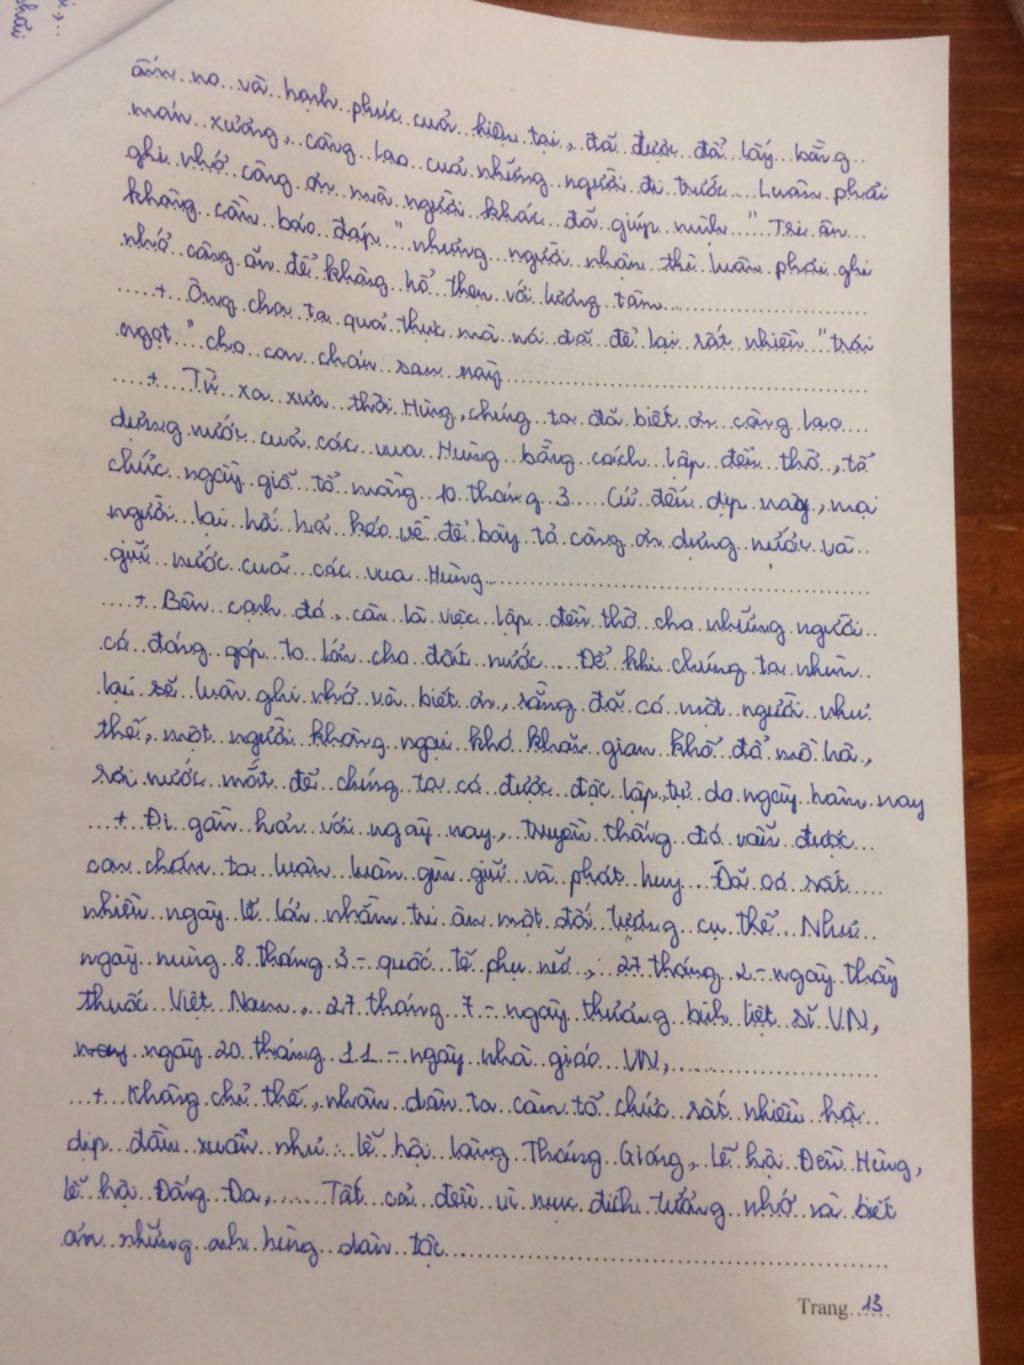 ấm no và hạnh phúc của hiện tại, đã được đổi lấy bằng
máu xương, công lao của những người đi trước. Luôn phải
ghi nhớ công ơn mà người khác đã giúp mình. "Tri ân
không cần báo đáp" nhưng người nhận thì luôn phải ghi
nhớ công ơn để không hổ thẹn với lương tâm.
+ Ông cha ta quả thực mà nói đã để lại rất nhiều "trái
ngọt" cho con cháu sau này
+ Từ xa xưa thời Hùng, chúng ta đã biết ơn công lao
dựng nước của các vua Hùng bằng cách lập đền thờ, tổ
chức ngày giỗ tổ mồng 10 tháng 3. Cứ đến dịp này, mọi
người lại hồ hả kéo về để bày tỏ công ơn dựng nước và
giữ nước của các vua Hùng.
+ Bên cạnh đó, còn là việc lập đền thờ cho những người
có đóng góp to lớn cho đất nước. Để khi chúng ta nhìn
lại sẽ luôn ghi nhớ và biết ơn, rằng đã có một người như
thế, một người không ngại khó khăn gian khổ đổ mồ hôi,
rơi nước mắt để chúng ta có được độc lập, tự do ngày hôm nay
+ Đi gần hơn với ngày nay, truyền thống đó vẫn được
con cháu ta luôn luôn gìn giữ và phát huy. Đã có rất
nhiều ngày lễ lớn nhằm tri ân một đối tượng cụ thể. Như
ngày mùng 8 tháng 3 - quốc tế phụ nữ, 27 tháng 2 - ngày thầy
thuốc Việt Nam, 27 tháng 7 - ngày thương binh liệt sĩ VN,
ngày 20 tháng 11 - ngày nhà giáo VN,
+ Không chỉ thế, nhân dân ta còn tổ chức rất nhiều hội
dịp đầu xuân như: lễ hội làng Tháng Gióng, lễ hội Đền Hùng,
lễ hội Đống Đa,...... Tất cả đều vì mục đích tưởng nhớ và biết
ơn những anh hùng dân tộc
Trang 13